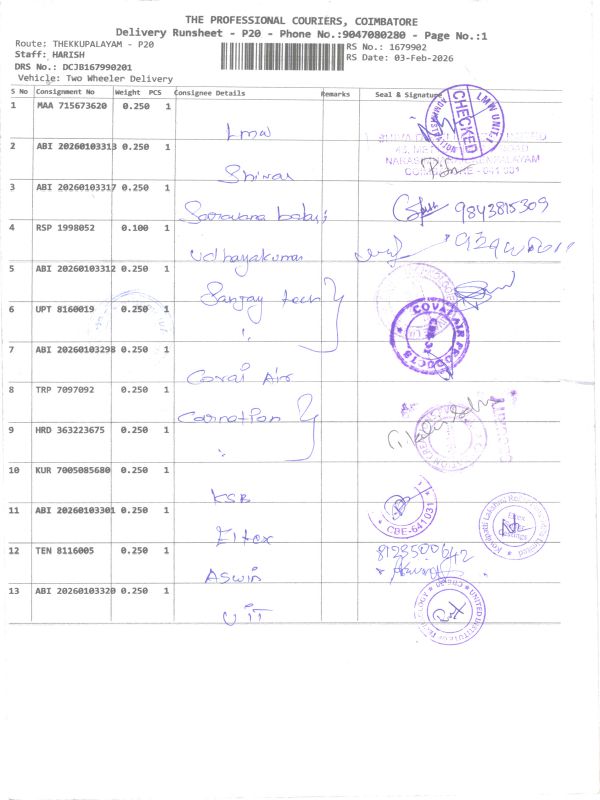 THE PROFESSIONAL COURIERS, COIMBATORE
Delivery Runsheet - P20 - Phone No.:9047080280 - Page No.:1
Route: THEKKUPALAYAM - P20
Staff: HARISH
DRS No.: DCJB167990201
Vehicle: Two Wheeler Delivery
RS No.: 1679902
RS Date: 03-Feb-2026
S No Consignment No Weight PCS Consignee Details Remarks Seal & Signature
1 MAA 715673620 0.250 1 Lmw
CHECKED
LMW UNIT-1
2 ABI 20260103313 0.250 1 Shivani
3 ABI 20260103317 0.250 1 Saravana balaji 9843815309
4 RSP 1998052 0.100 1 Udhayakumar
5 ABI 20260103312 0.250 1 Sanjay
6 UPT 8160019 0.250 1 "
COVAI AIR PRODUCTS
7 ABI 20260103298 0.250 1 Covai Air
8 TRP 7097092 0.250 1 Carnation
9 HRD 363223675 0.250 1 "
10 KUR 7005085680 0.250 1 KSB
CBE-641031
11 ABI 20260103301 0.250 1 Eltex
12 TEN 8116005 0.250 1 Aswin 8123500642
13 ABI 20260103320 0.250 1 UIT
UNITED INSTITUTE OF TECHNOLOGY